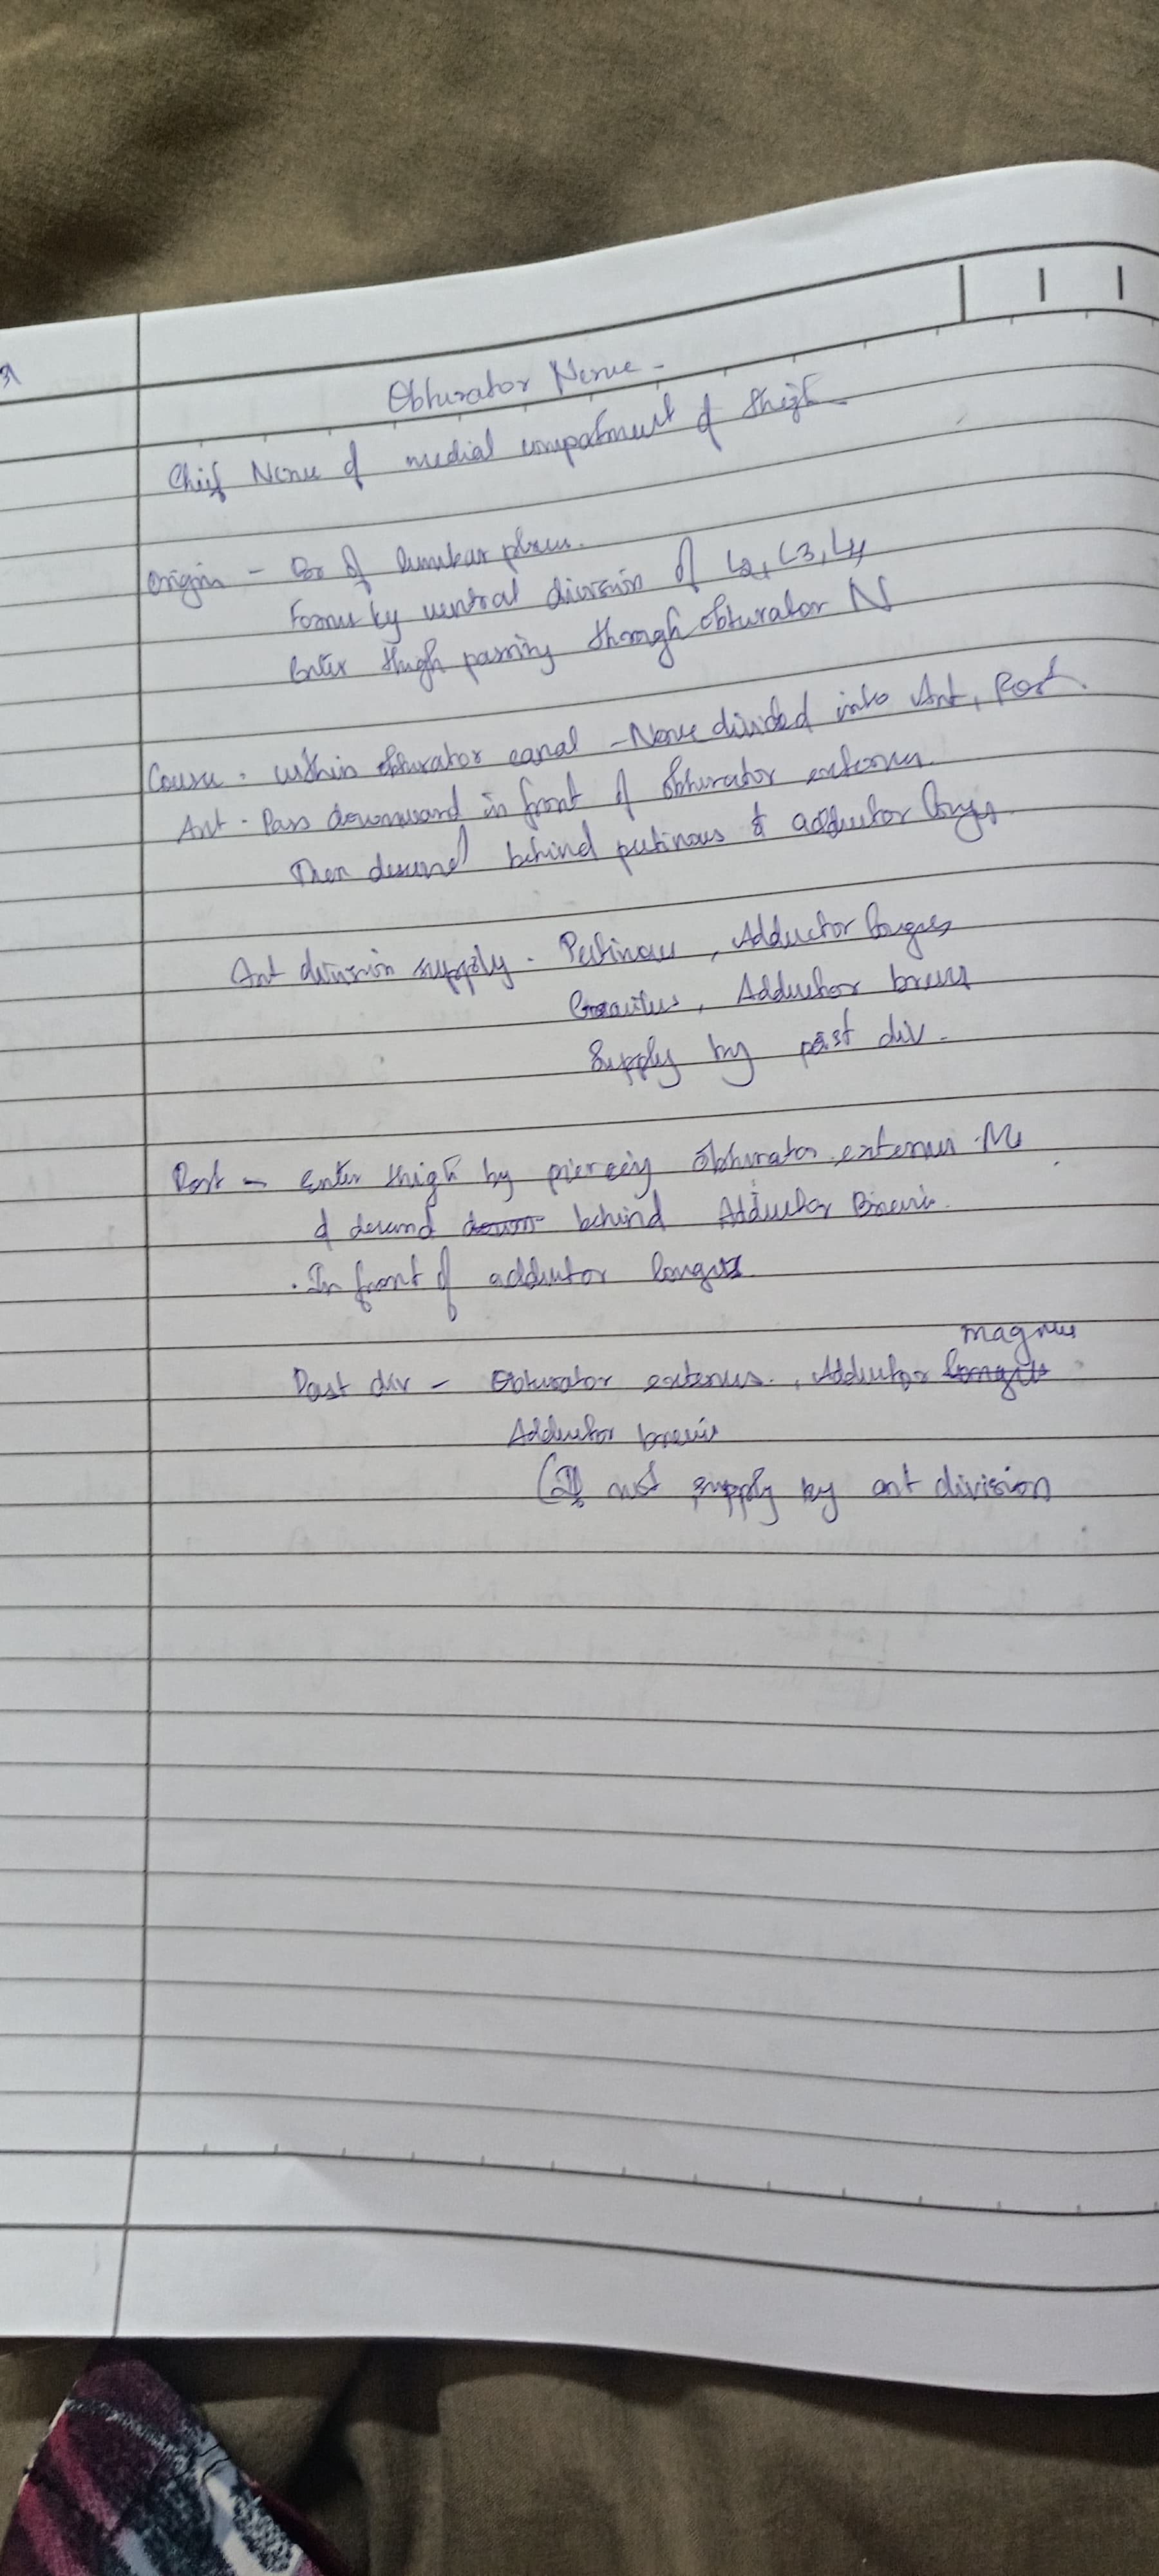 Obturator Nerve -
Chief Nerve of medial compartment of thigh
Origin - Br of lumbar plexus.
Form by ventral division of L2, L3, L4
Enter thigh passing through obturator N
Course - within obturator canal - Nerve divided into Ant, Post
Ant - Pass downward in front of obturator externus.
Then descend behind pectineus & adductor longus
Ant division supply - Pectineus, Adductor longus
Gracilus, Adductor brevis
Supply by post div.
Post - Enter thigh by piercing obturator externus Ms
& descend down behind Adductor Brevis.
. In front of adductor longus.
magnus
Post div - Obturator externus., Adductor longus
Adductor brevis
(If not supply by ant division